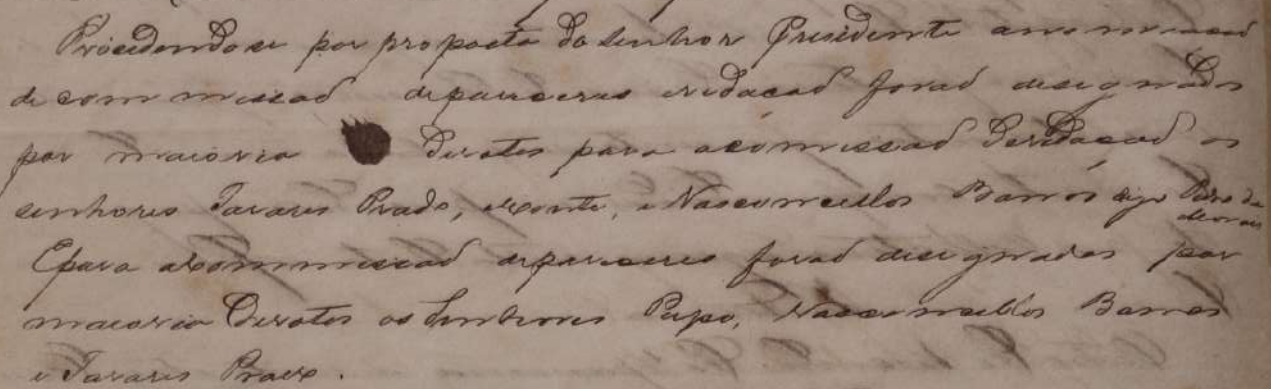 Procedendose por proposta do Senhor Presidente anomeacaõ
de commissaõ depareceres eredacaõ foraõ designados
por maioria devotos para acomissaõ deredacaõ os
senhores Tavares Prado, eConte, e Vasconcellos Barros digo Pedro de Moraes
Epara acommissaõ depareceres foraõ designados por
maioria devotos os Senhores Pupo, Vasconcellos Barros
e Tavares